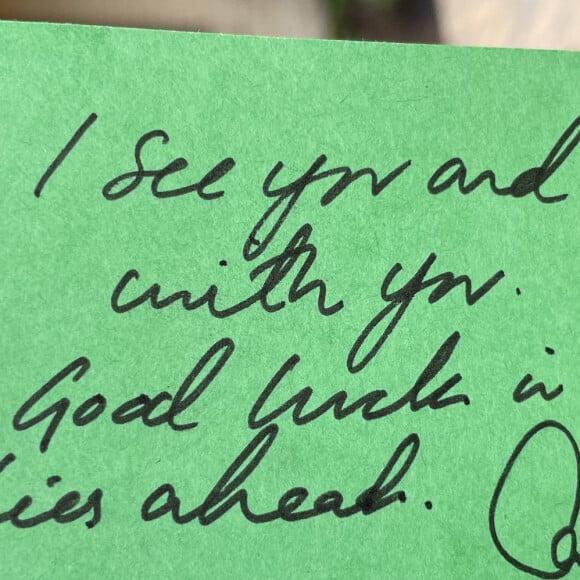 I see you and
with you.
Good luck in
lies ahead.